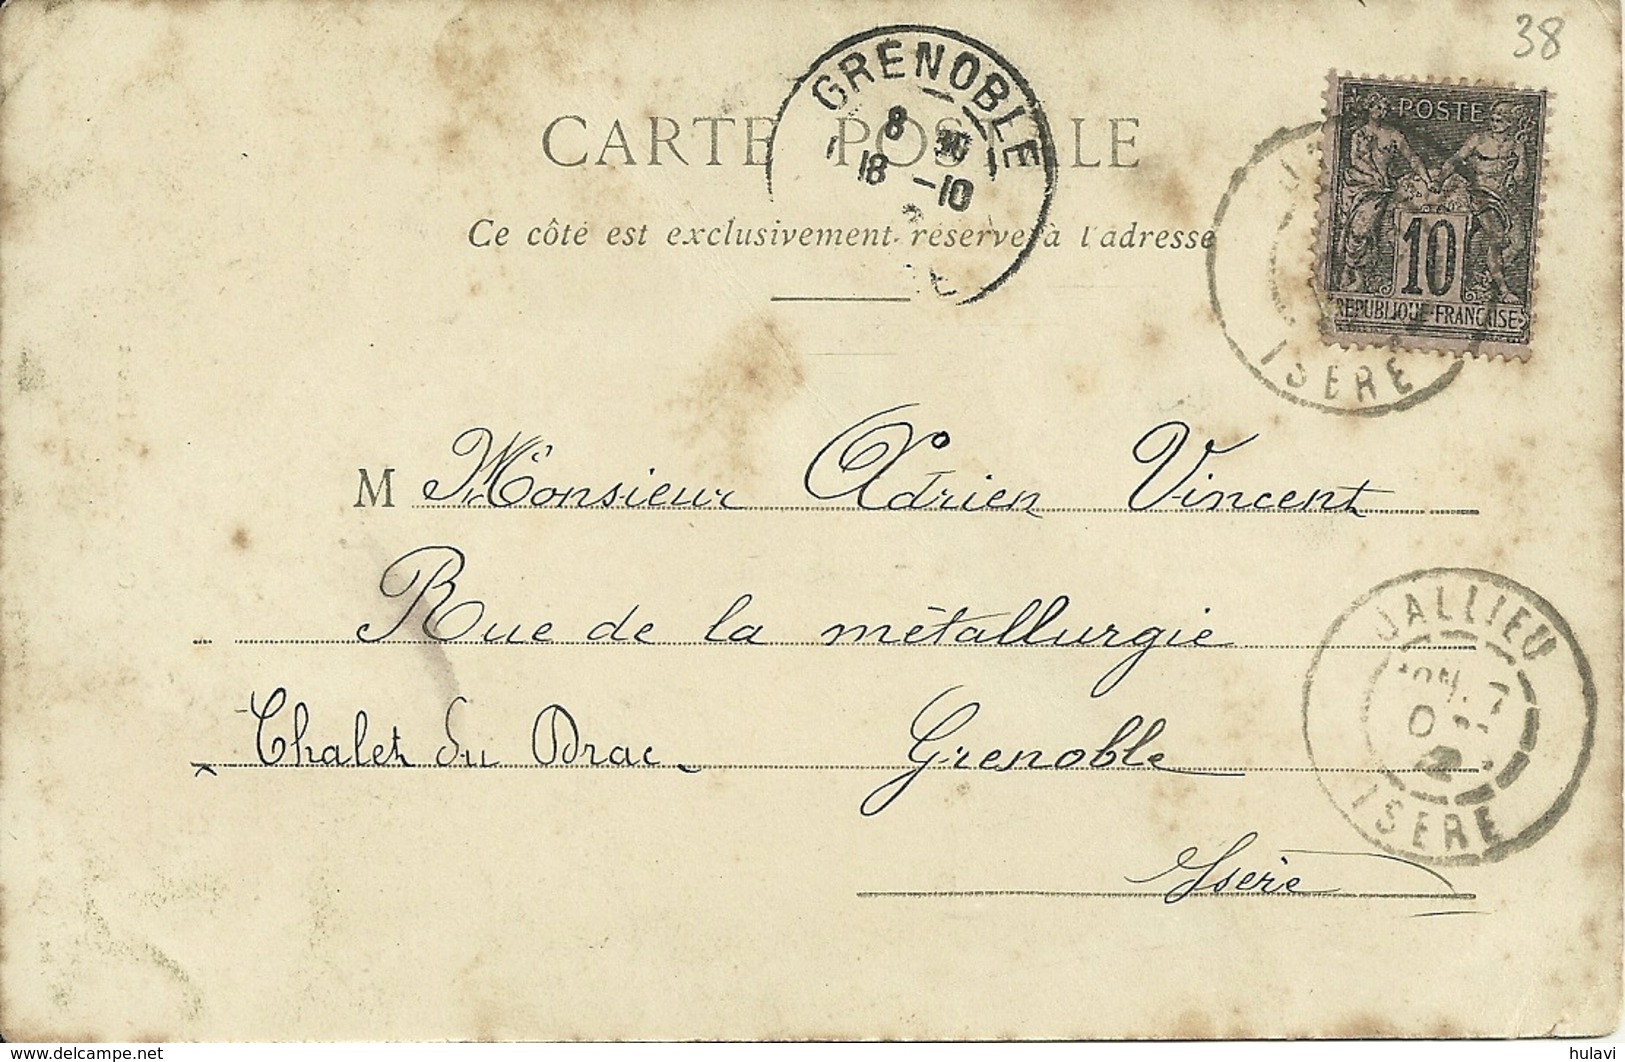 38
GRENOBLE
8
18 -10
CARTE POSTALE
Ce côté est exclusivement réservé à l'adresse
POSTE
10
REPUBLIQUE FRANÇAISE
ISERE
M Monsieur Adrien Vincent
Rue de la métallurgie
Chalet du Drac Grenoble
Isère
JALLIEU
7
ISERE
www.delcampe.net
hulavi